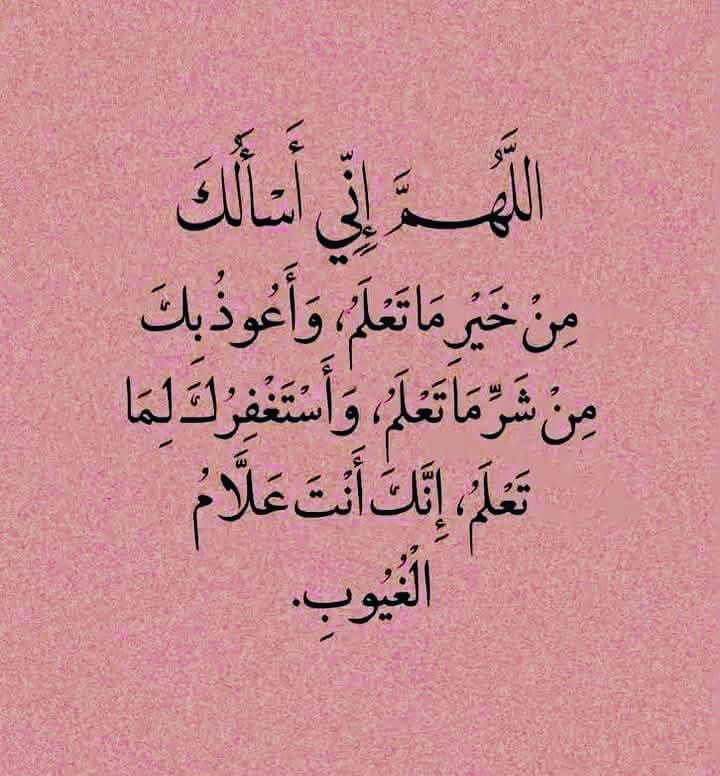 اللَّهُمَّ إِنِّي أَسْأَلُكَ
مِنْ خَيْرِ مَا تَعْلَمُ، وَأَعُوذُ بِكَ
مِنْ شَرِّ مَا تَعْلَمُ، وَأَسْتَغْفِرُكَ لِمَا
تَعْلَمُ، إِنَّكَ أَنْتَ عَلَّامُ
الْغُيُوبِ.